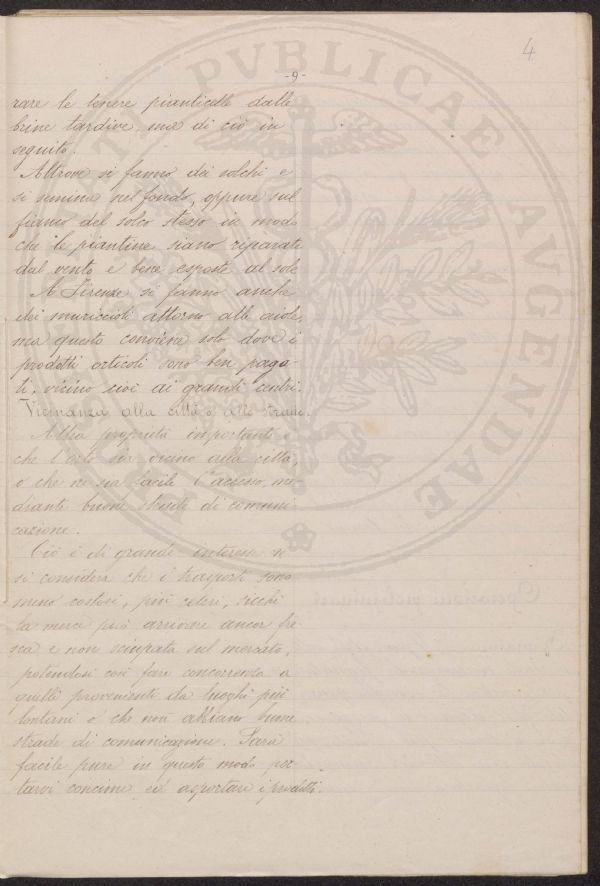 4
-9-
rare le tenere pianticelle dalle
brine tardive, ma di ciò in
seguito.
Altrove si fanno dei solchi e
si semina nel fondo, oppure sul
fianco del solco stesso in modo
che le piantine siano riparate
dal vento e bene esposte al sole
A Firenze si fanno anche
dei muriccioli attorno alle aiole,
ma questo conviene solo dove i
prodotti orticoli sono ben paga-
ti, vicino cioè ai grandi centri.
Vicinanza alla città o alle strade.
Altra proprietà importante è
che l'orto sia vicino alla città,
o che ne sia facile l'accesso, me
diante buone strade di comuni-
cazione.
Ciò è di grande interesse se
si considera che i trasporti sono
meno costosi, più celeri, sicchè
la merce può arrivare ancor fre
sca e non sciupata sul mercato,
potendosi così fare concorrenza a
quelle proveniente da luoghi più
lontani o che non abbiano buone
strade di comunicazione. Sarà
facile pure in questo modo por
tarvi concime ed asportare i prodotti.
PVBLICAE
AVGENDAE